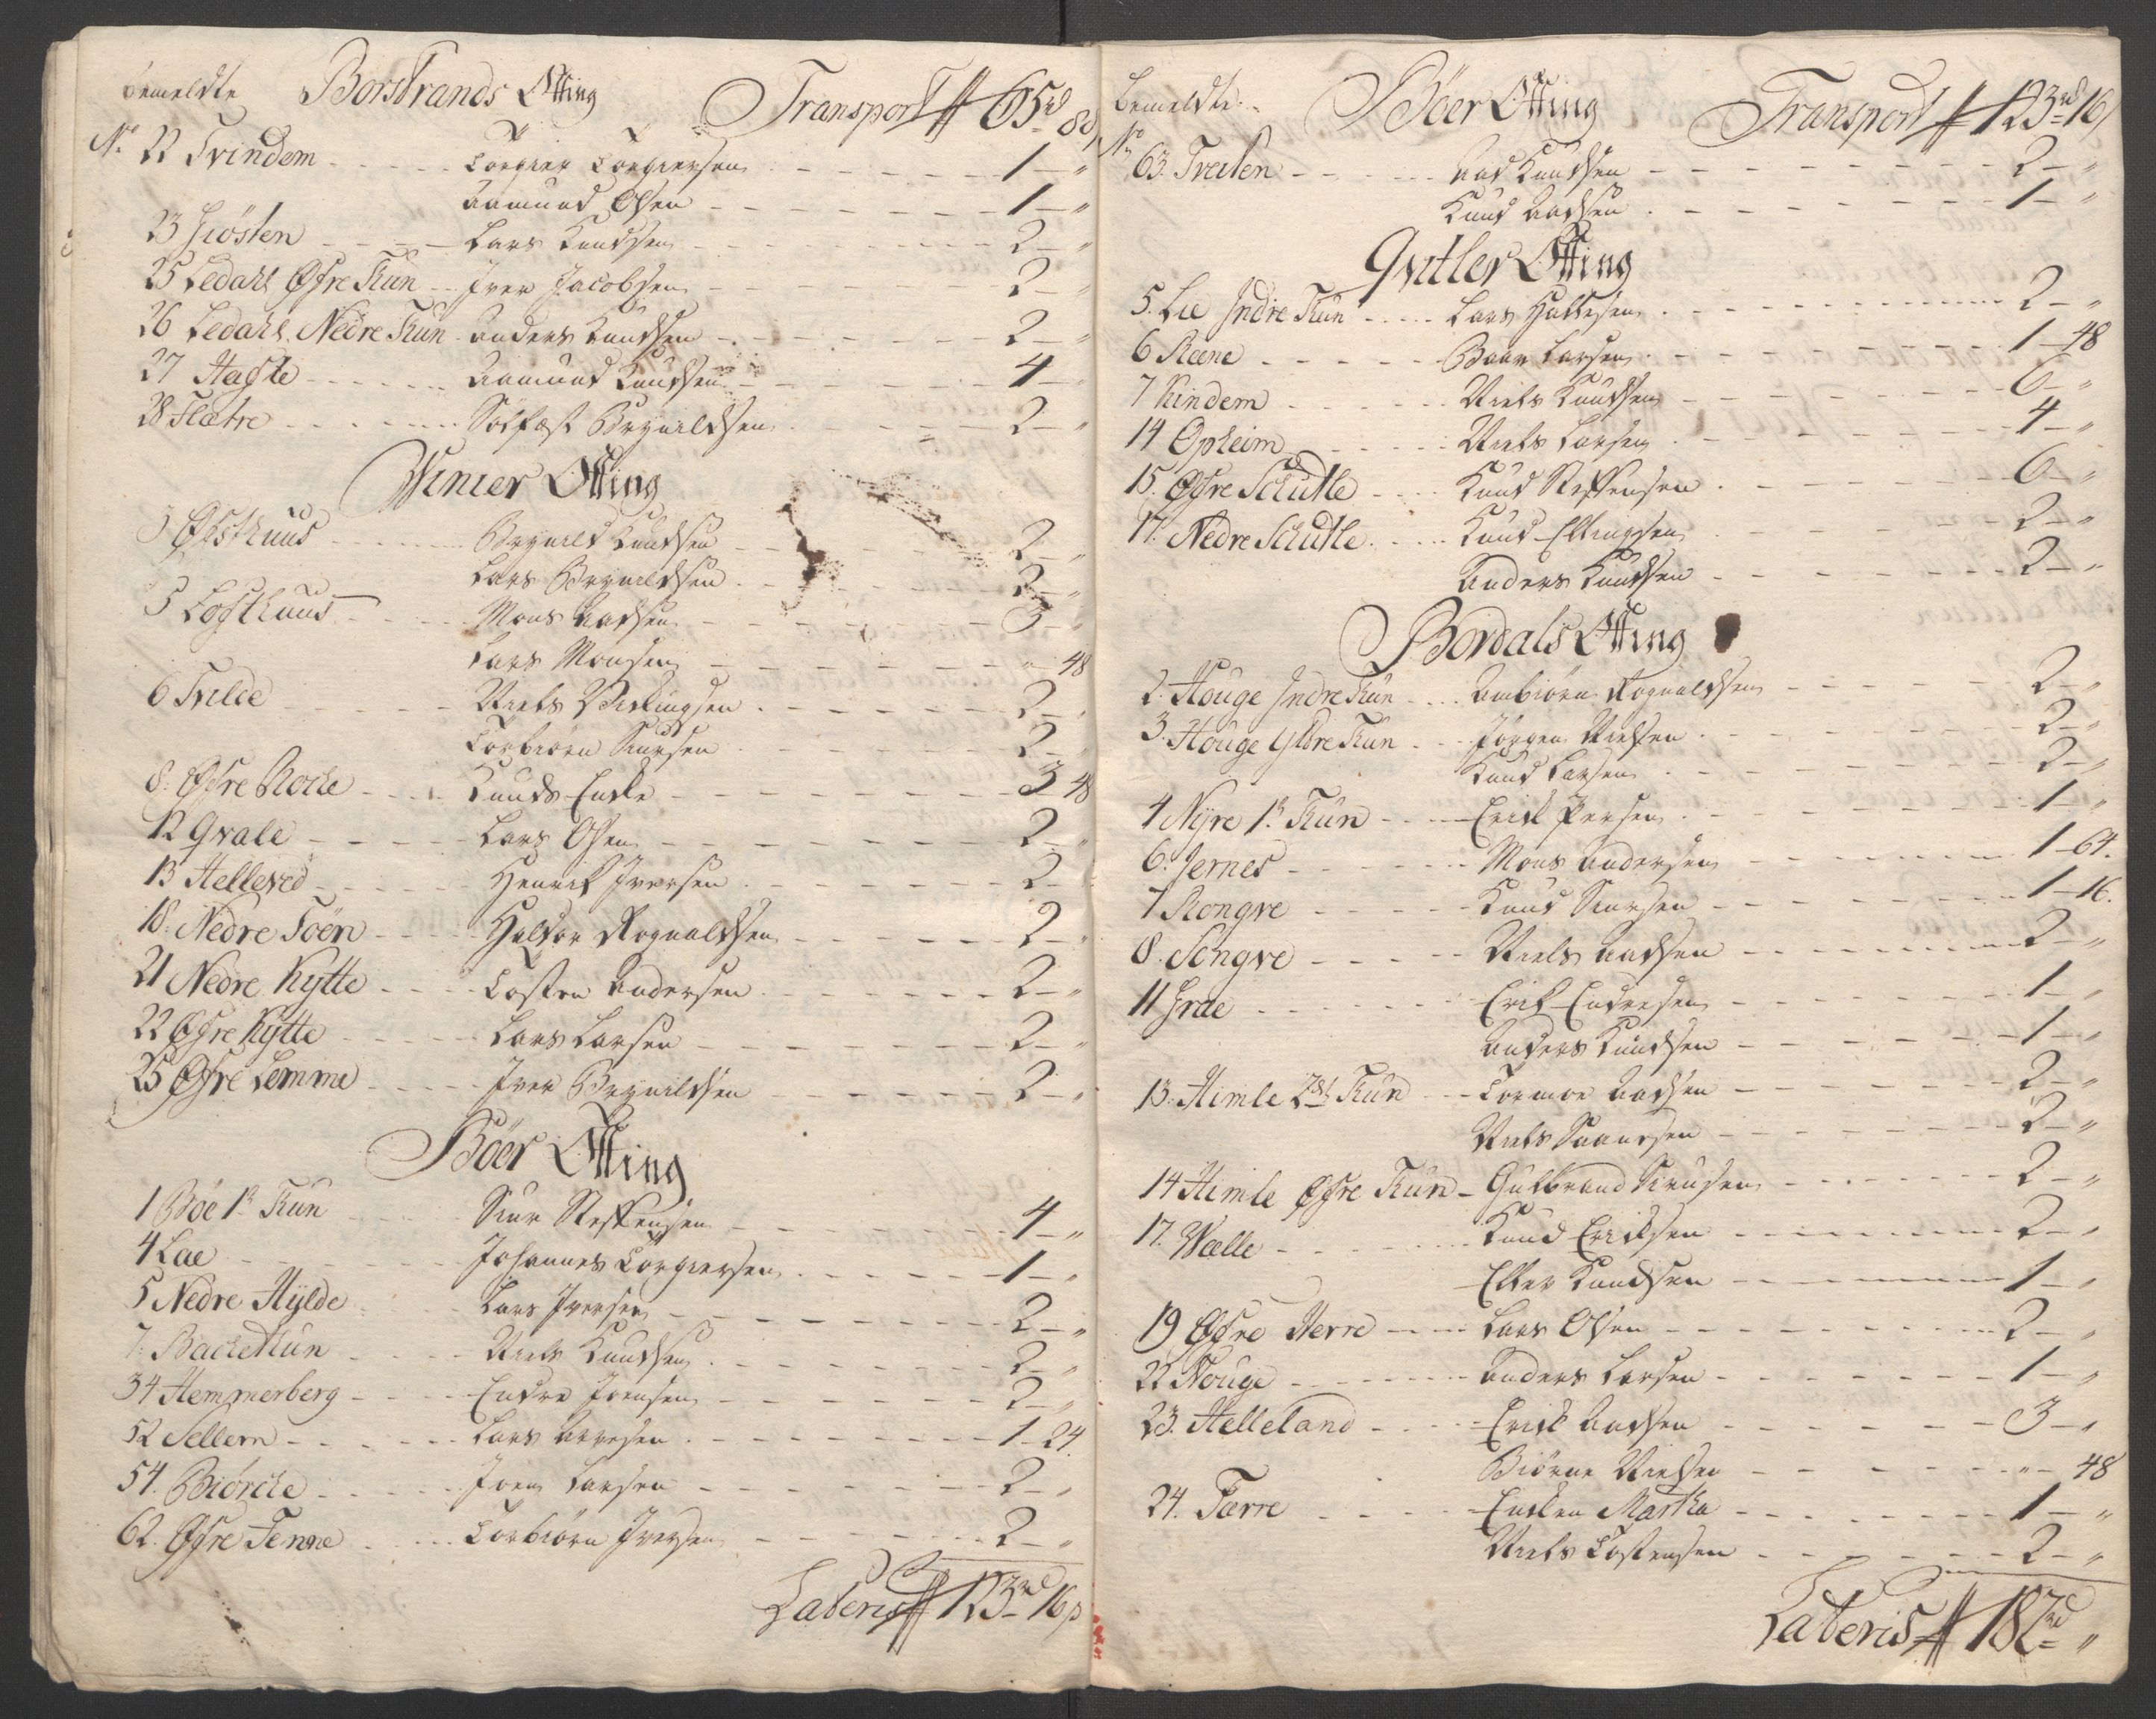 bemeldte Borstrands Otting Transport 65 rd 80
No 22 Tvindem Torgier Torgiersen 1 - "
Aamund Olsen 1 - "
23 Hiösten Lars Knudsen 2 - "
25 Ledahl Øfre Tun Iver Jacobsen 2 - "
26 Ledahl Nedre Tun Anders Knudsen 2 - "
27 Hagste Aamund Knudsen 4 -
28 Flatre Solfest Brynildsen 2 - "
Winier Otting
3 Øbsthuus Brynild Knudsen 2 - "
Lars Brynildsen 2 - "
5 Lofthuus Mons Aadsen 3 - "
Lars Monsen " 48
6 Tvilde Niels Vikingsen 2 -
Torbiörn Siursen 2 - "
8. Øfre Rocke Knuds Encke 3 48
12 Qvale Lars Olsen 2 "
13 Helleved Henrik Iversen 2 -
18. Nedre Föen Haldor Rognaldsen 2 - "
21 Nedre Kytte Tosten Andersen 2 - "
22 Øfre Kytte Lars Larsen 2 - "
25 Øfre Lemme Iver Brynildsen 2 - "
Böer Otting
1 Böe 1te Tun Siur Steffensen 4 - "
4 Lae Johannes Torgiersen 1 - "
5 Nedre Hylde Lars Iversen 2 - "
7. Bachetun Niels Knudsen 2 - "
34 Hemmerberg Endre Joensen 2 - "
52 Sellem Lars Arnesen 1 - 24.
54. Biörcke Joen Larsen 2 - "
62. Øfre Tenne Torbiörn Iversen 2 - "
Lateris 123 rd 16 s
bemeldte Böer Otting Transport 123 rd 16
No
63. Træten Aad Knudsen 2 - "
Knud Aadsen 1 - "
Qvitler Otting
5. Lie Indre Tun Lars Hallesen 2 - "
6 Reene Baar Larsen 1 - 48
7 Kindem Niels Knudsen 6 - "
14 Opheim Niels Larsen 4 - "
15. Øfre Schutle Knud Steffensen 6 - "
17. Nedre Schutle Knud Ellingsen 2 - "
Anders Knudsen 2 - "
Bordals Otting
2. Houge Indre Tun Ambiörn Rognaldsen 2 - "
3. Houge Ytdre Tun Jörgen Nielsen 2 - "
Knud Larsen 2 - "
4 Nyre 1te Tun Erick Persen 1 - "
6. Jernes Mons Andersen 1 - 64.
7 Rongve Knud Siursen 1 - 16.
8. Songve Niels Aadsen 2 - "
11 Grae Erik Endresen 1 - "
Anders Knudsen 1 - "
13. Himle 2det Tun Tormoe Aadsen 2 - "
Niels Siursen 2 - "
14 Himle Øfre Tun Gulbrand Siursen 2 - "
17. Wælle Knud Ericksen 2 - "
Elles Knudsen 1 - "
19 Øfre Herre Lars Olsen 2 - "
22 Nouge Anders Larsen 1 - "
23. Helleland Erick Aadsen 3 - "
Biörne Nielsen " - 48
24. Tærre Encken Martha 1 - "
Niels Tostensen 2 - "
Lateris 187 rd "